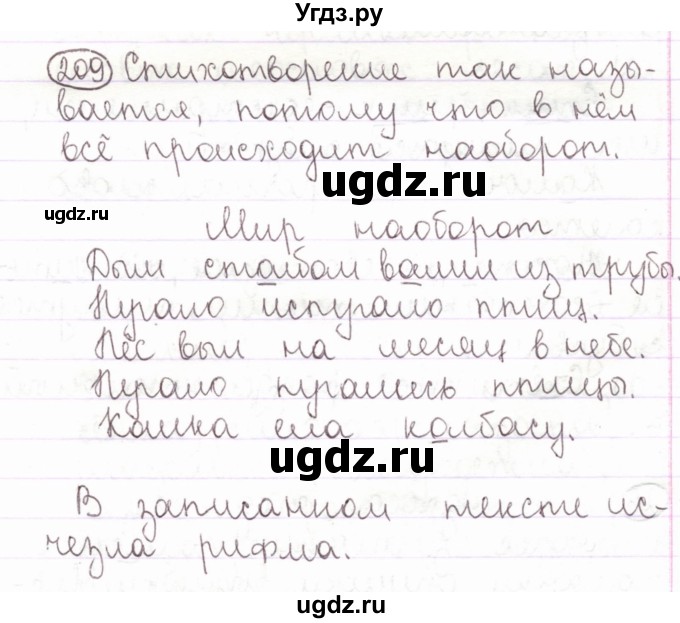 Угдз.ру
209 Стихотворение так назы-
вается, потому что в нём
всё происходит наоборот.
ugdz.ru
ugdz.ru
Мир наоборот
Дым столбом валил из трубы.
Пугало испугало птиц.
Пёс выл на месяц в небе.
Пугало пугались птицы.
Кошка ела колбасу.
ugdz.ru
ugdz.ru
В записанном тексте ис-
чезла рифма.
ugdz.ru
ugdz.ru